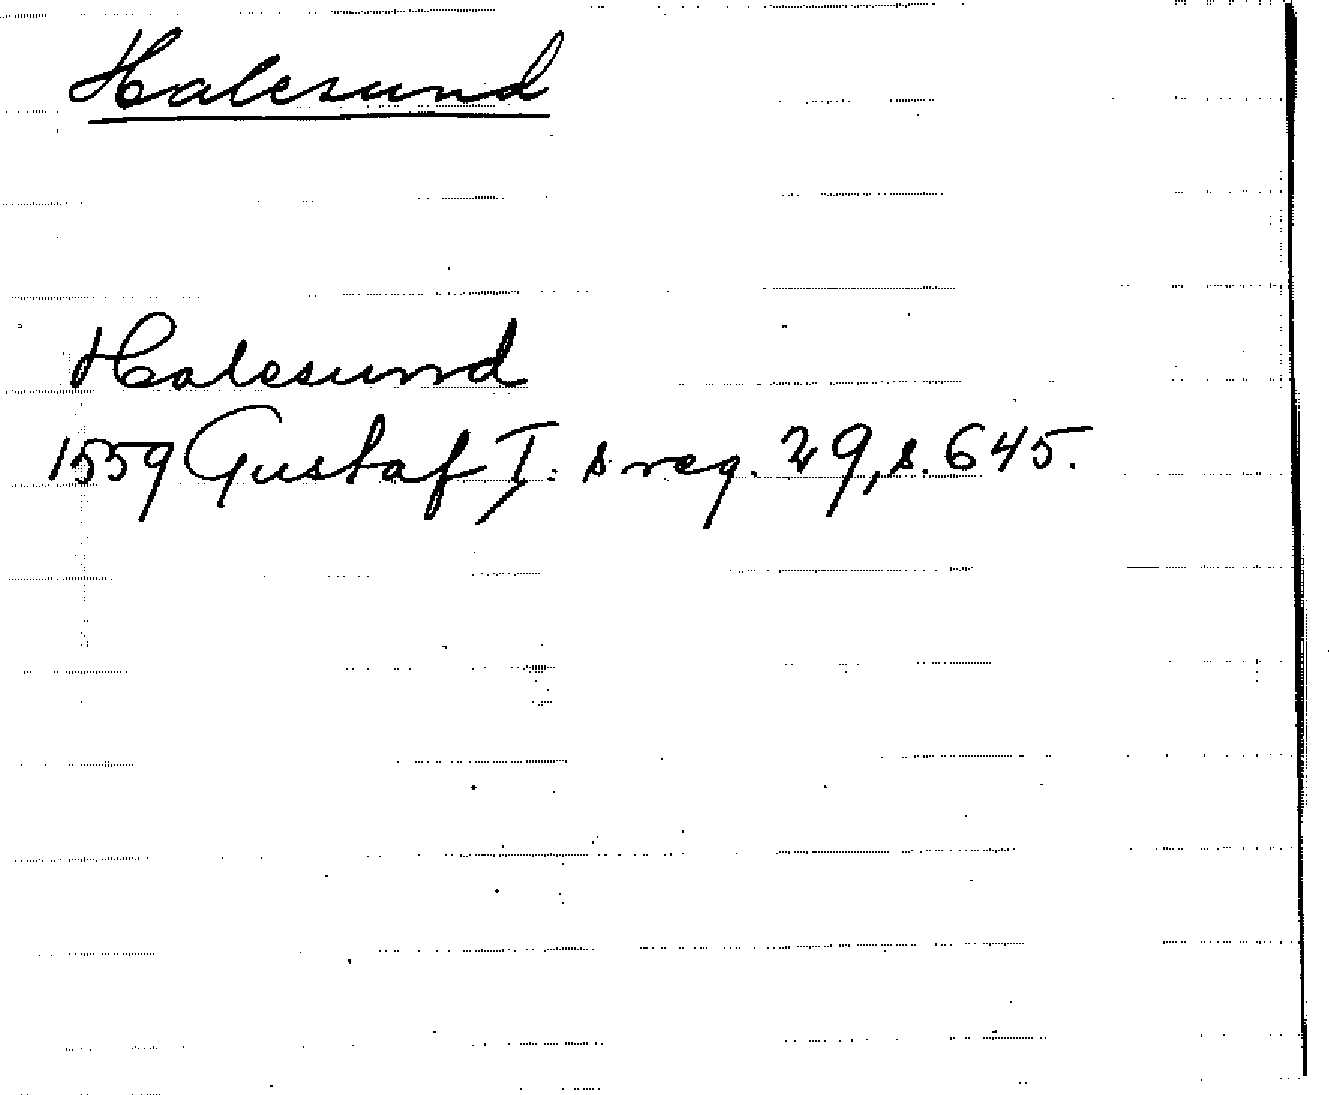 Halesund
Halesund
1559 Gustaf I:s reg. 29, s. 645.